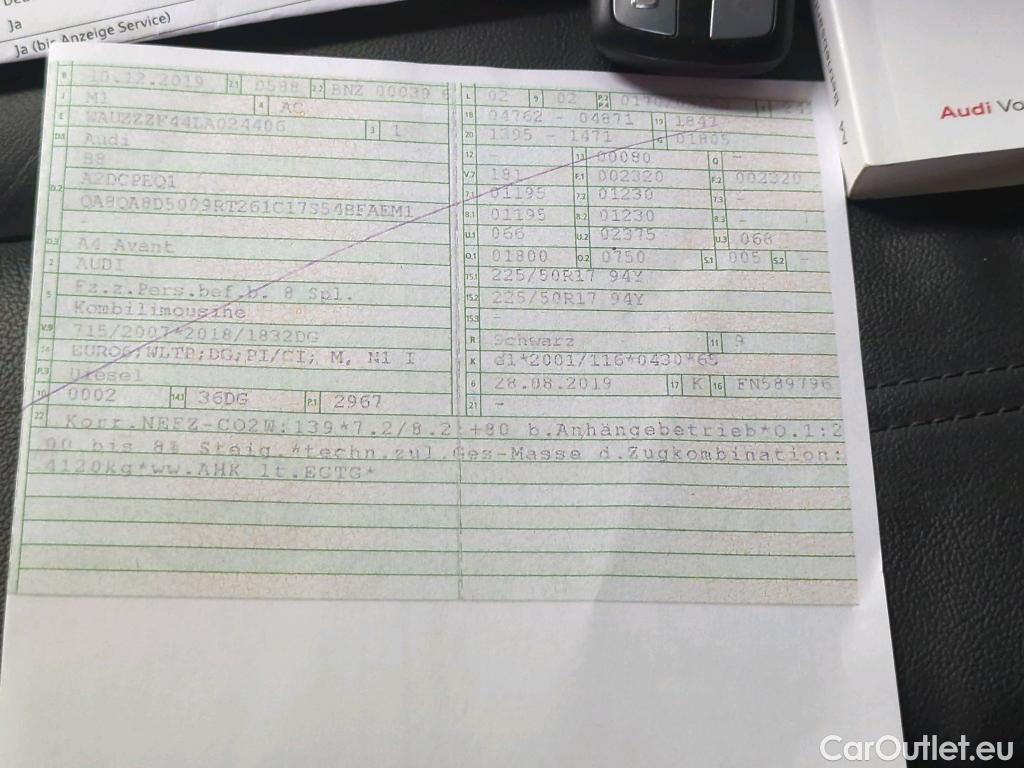 Ja
Ja (bis Anzeige Service)
Audi Vo
B 10.12.2019 2.1 D588 2.2 BNZ 00039 6
J M1 4 AC
E WAUZZZF44LA024406 3 1
D.1 Audi
B8
D.2 A2DCPEQ1
QA8QA8D5009RT261C17S54BFAEM1
-
D.3 A4 Avant
2 AUDI
5 Fz.z.Pers.bef.b. 8 Spl.
Kombilimousine
V.9 715/2007*2018/1832DG
14 EURO6;WLTP;DG;PI/CI; M, N1 I
P.3 Diesel
10 0002 14.1 36DG P.1 2967
L 02 9 02 P.2 P.4
18 04762 - 04871 19 1842
20 1395 - 1471 G 01805
12 - 13 00080 Q -
V.7 181 F.1 002320 F.2 002320
7.1 01195 7.2 01230 7.3 -
8.1 01195 8.2 01230 8.3 -
U.1 066 U.2 02375 U.3 068
O.1 01800 O.2 0750 S.1 005 S.2 -
15.1 225/50R17 94Y
15.2 225/50R17 94Y
15.3 -
R Schwarz 11 9
K e1*2001/116*0430*65
6 28.08.2019 17 K 16 FN589796
21 -
22 Korr.NEFZ-CO2W:139*7.2/8.2:+80 b.Anhängebetrieb*O.1:2
00 bis 8% Steig.*techn.zul.Ges-Masse d.Zugkombination:
4120kg*ww.AHK lt.EGTG*
CarOutlet.eu